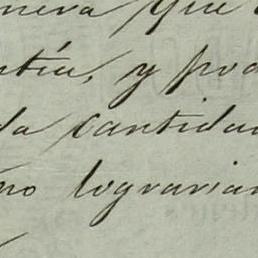 neva que
ntía, y pod
da cantidad
no lograrian